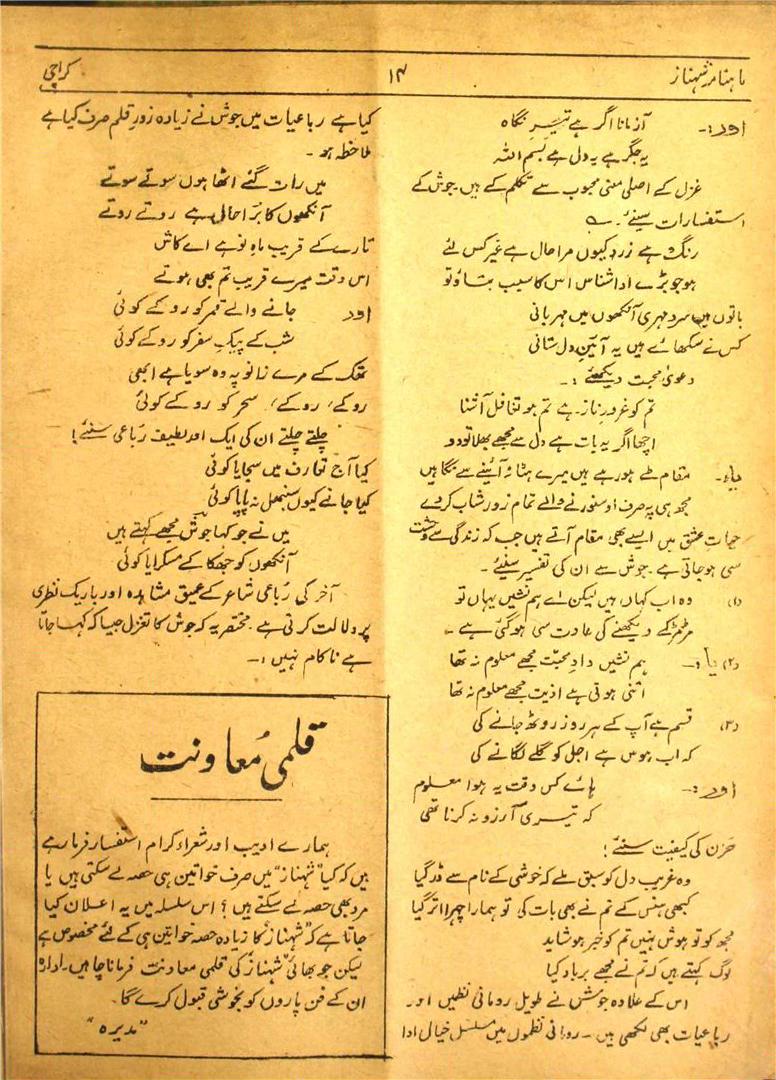 ماہنامہ شہناز ۱۴ کراچی
اور:۔ آزمانا اگر ہے تیرِ نگاہ
یہ جگر ہے یہ دل ہے بسم اللہ
غزل کے اصلی معنی محبوب سے تکلم کے ہیں۔ جوش کے
استفسارات سنیئے۔
رنگ ہے زرد کیوں مرا حال ہے غیر کس لئے
ہو جو بڑے ادا شناس اس کا سبب بتاؤ تو
باتوں میں سرد مہری آنکھوں میں مہربانی
کس نے سکھائے ہیں یہ آئینِ دل ستانی
دعویٰ محبت دیکھئے:۔
تم کو غرورِ ناز ہے تم ہو تغافل آشنا
اچھا اگر یہ بات ہے دل سے مجھے بھلا تو دو
یا:۔ مقام طے ہو رہے ہیں میرے ہٹا نہ آئینے سے نگاہیں
مجھ ہی پہ صرف او سنورنے والے تمام زورِ شباب کر دے
حیاتِ عشق میں ایسے بھی مقام آتے ہیں جب کہ زندگی سے وحشت
سی ہو جاتی ہے۔ جوش سے ان کی تفسیر سنیئے۔
(۱) وہ اب کہاں ہیں لیکن اے ہم نشیں یہاں تو
مڑ مڑ کے دیکھنے کی عادت سی ہو گئی ہے۔
(۲) یا:۔ ہم نشیں دادِ محبت مجھے معلوم نہ تھا
اتنی ہوتی ہے اذیت مجھے معلوم نہ تھا
(۳) قسم ہے آپ کے ہر روز روٹھ جانے کی
کہ اب ہوس ہے اجل کو گلے لگانے کی
اور:۔ ہائے کس وقت یہ ہوا معلوم
کہ تیری آرزو نہ کرنا تھی
حزن کی کیفیت سنیئے!
وہ غریب دل کو سبق ملے کہ خوشی کے نام سے ڈر گیا
کبھی ہنس کے تم نے بھی بات کی تو ہمارا چہرا اتر گیا
مجھ کو تو ہوش نہیں تم کو خبر ہو شاید
لوگ کہتے ہیں کہ تم نے مجھے برباد کیا
اس کے علاوہ جوش نے طویل رومانی نظمیں اور
رباعیات بھی لکھی ہیں۔ رومانی نظموں میں مسلسل خیال ادا
کیا ہے رباعیات میں جوش نے زیادہ زورِ قلم صرف کیا ہے
ملاحظہ ہو۔
میں رات گئے اٹھا ہوں سوتے سوتے
آنکھوں کا بُرا حال ہے روتے روتے
تارے کے قریب ماہِ نو ہے اے کاش
اس وقت میرے قریب تم بھی ہوتے
اور جانے والے قمر کو روکے کوئی
شب کے پیکِ سفر کو روکے کوئی
تھک کے مرے زانو پہ وہ سویا ہے ابھی
روکے، روکے، سحر کو روکے کوئی
چلتے چلتے ان کی ایک اور لطیف رباعی سنیئے!
کیا آج تعارف میں سجایا کوئی
کیا جانے کیوں سنبھل نہ پایا کوئی
میں نے جو کہا جوش مجھے کہتے ہیں
آنکھوں کو جھکا کے مسکرایا کوئی
آخر کی رُباعی شاعر کے عمیق مشاہدہ اور باریک نظری
پر دلالت کرتی ہے۔ مختصر یہ کہ جوش کا تغزل جیسا کہ کہا جاتا
ہے ناکام نہیں:۔
قلمی مُعاونت
ہمارے ادیب اور شعراء کرام استفسار فرما رہے
ہیں کہ کیا "شہناز" میں صرف خواتین ہی حصہ لے سکتی ہیں یا
مرد بھی حصہ لے سکتے ہیں؟ اس سلسلہ میں یہ اعلان کیا
جاتا ہے کہ "شہناز" کا زیادہ حصہ خواتین ہی کے لئے مخصوص ہے
لیکن جو بھائی "شہناز" کی قلمی معاونت فرمانا چاہیں۔ ادارہ
ان کے فن پاروں کو بخوشی قبول کرے گا۔
"مدیرہ"